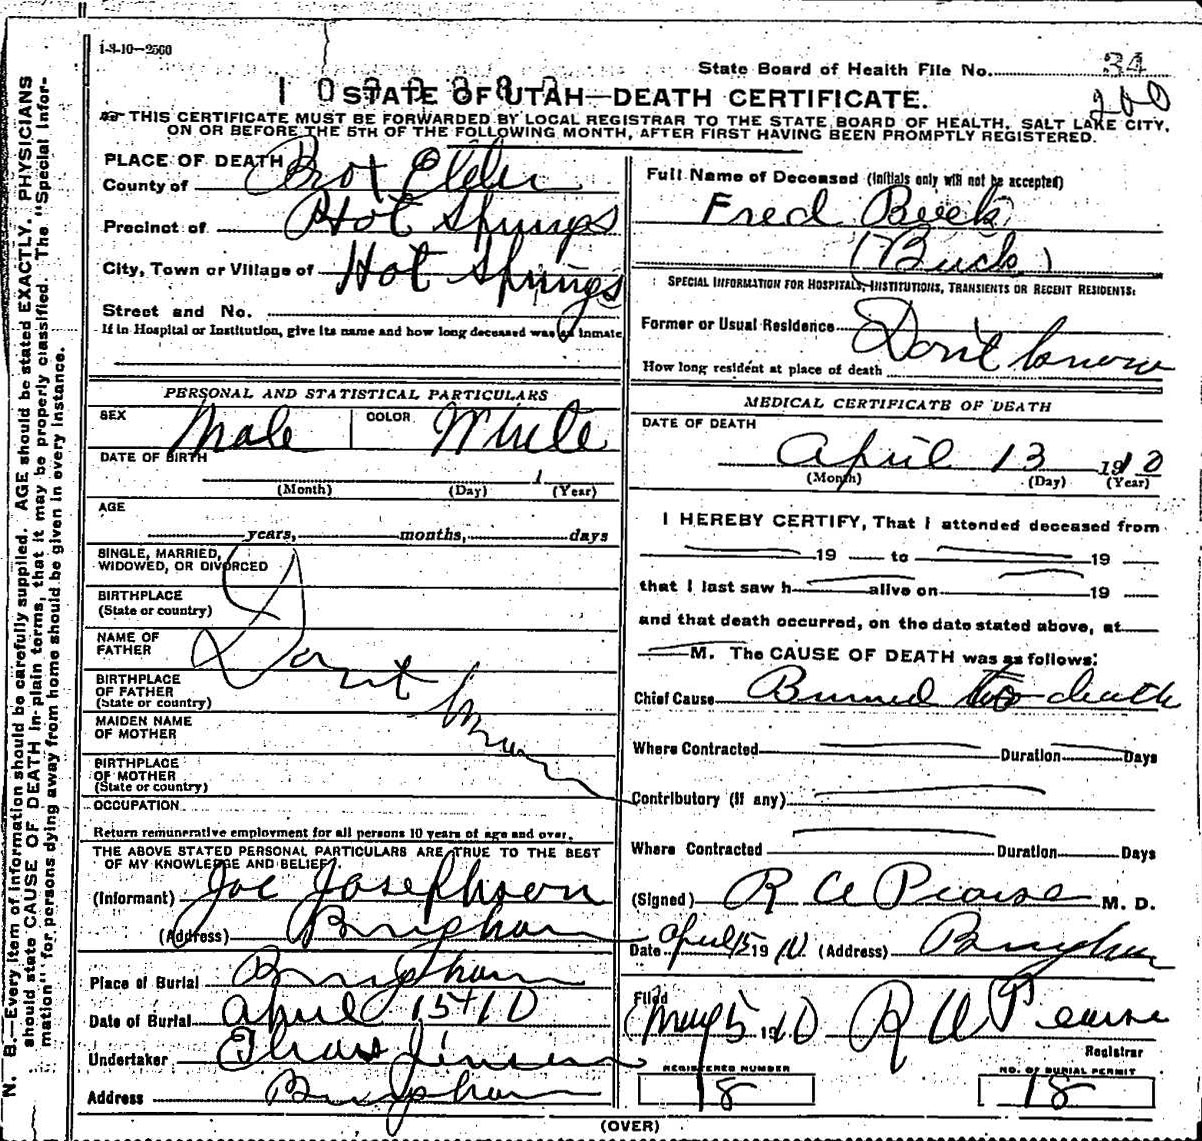 1-3-10—2560
State Board of Health File No. 34
260
STATE OF UTAH—DEATH CERTIFICATE.
THIS CERTIFICATE MUST BE FORWARDED BY LOCAL REGISTRAR TO THE STATE BOARD OF HEALTH, SALT LAKE CITY,
ON OR BEFORE THE 5TH OF THE FOLLOWING MONTH, AFTER FIRST HAVING BEEN PROMPTLY REGISTERED.
N. B.—Every item of information should be carefully supplied. AGE should be stated EXACTLY. PHYSICIANS
should state CAUSE OF DEATH in plain terms, that it may be properly classified. The "Special Infor-
mation" for persons dying away from home should be given in every instance.
PLACE OF DEATH
County of Box Elder
Precinct of Hot Springs
City, Town or Village of Hot Springs
Street and No.
If in Hospital or Institution, give its name and how long deceased was an inmate
PERSONAL AND STATISTICAL PARTICULARS
SEX Male COLOR White
DATE OF BIRTH
1
(Month) (Day) (Year)
AGE
years, months, days
SINGLE, MARRIED,
WIDOWED, OR DIVORCED
BIRTHPLACE
(State or country)
NAME OF
FATHER
Dont know
BIRTHPLACE
OF FATHER
(State or country)
MAIDEN NAME
OF MOTHER
BIRTHPLACE
OF MOTHER
(State or country)
OCCUPATION
Return remunerative employment for all persons 10 years of age and over.
THE ABOVE STATED PERSONAL PARTICULARS ARE TRUE TO THE BEST
OF MY KNOWLEDGE AND BELIEF.
(Informant) Joe Josephson
(Address) Brigham
Place of Burial Brigham
Date of Burial April 15th 10
Undertaker Jensen
Address Brigham
Full Name of Deceased (Initials only will not be accepted)
Fred Beck
(Buck)
SPECIAL INFORMATION FOR HOSPITALS, INSTITUTIONS, TRANSIENTS OR RECENT RESIDENTS:
Former or Usual Residence Don't know
How long resident at place of death
MEDICAL CERTIFICATE OF DEATH
DATE OF DEATH
April 13 1910
(Month) (Day) (Year)
I HEREBY CERTIFY, That I attended deceased from
19 to 19
that I last saw h alive on 19
and that death occurred, on the date stated above, at
M. The CAUSE OF DEATH was as follows:
Chief Cause Burned to death
Where Contracted Duration Days
Contributory (if any)
Where Contracted Duration Days
(Signed) R A Pearse M. D.
Date April 15 1910 (Address) Brigham
Filed
May 5 1910 R A Pearse
Registrar
REGISTERED NUMBER
18
NO. OF BURIAL PERMIT
18
(OVER)